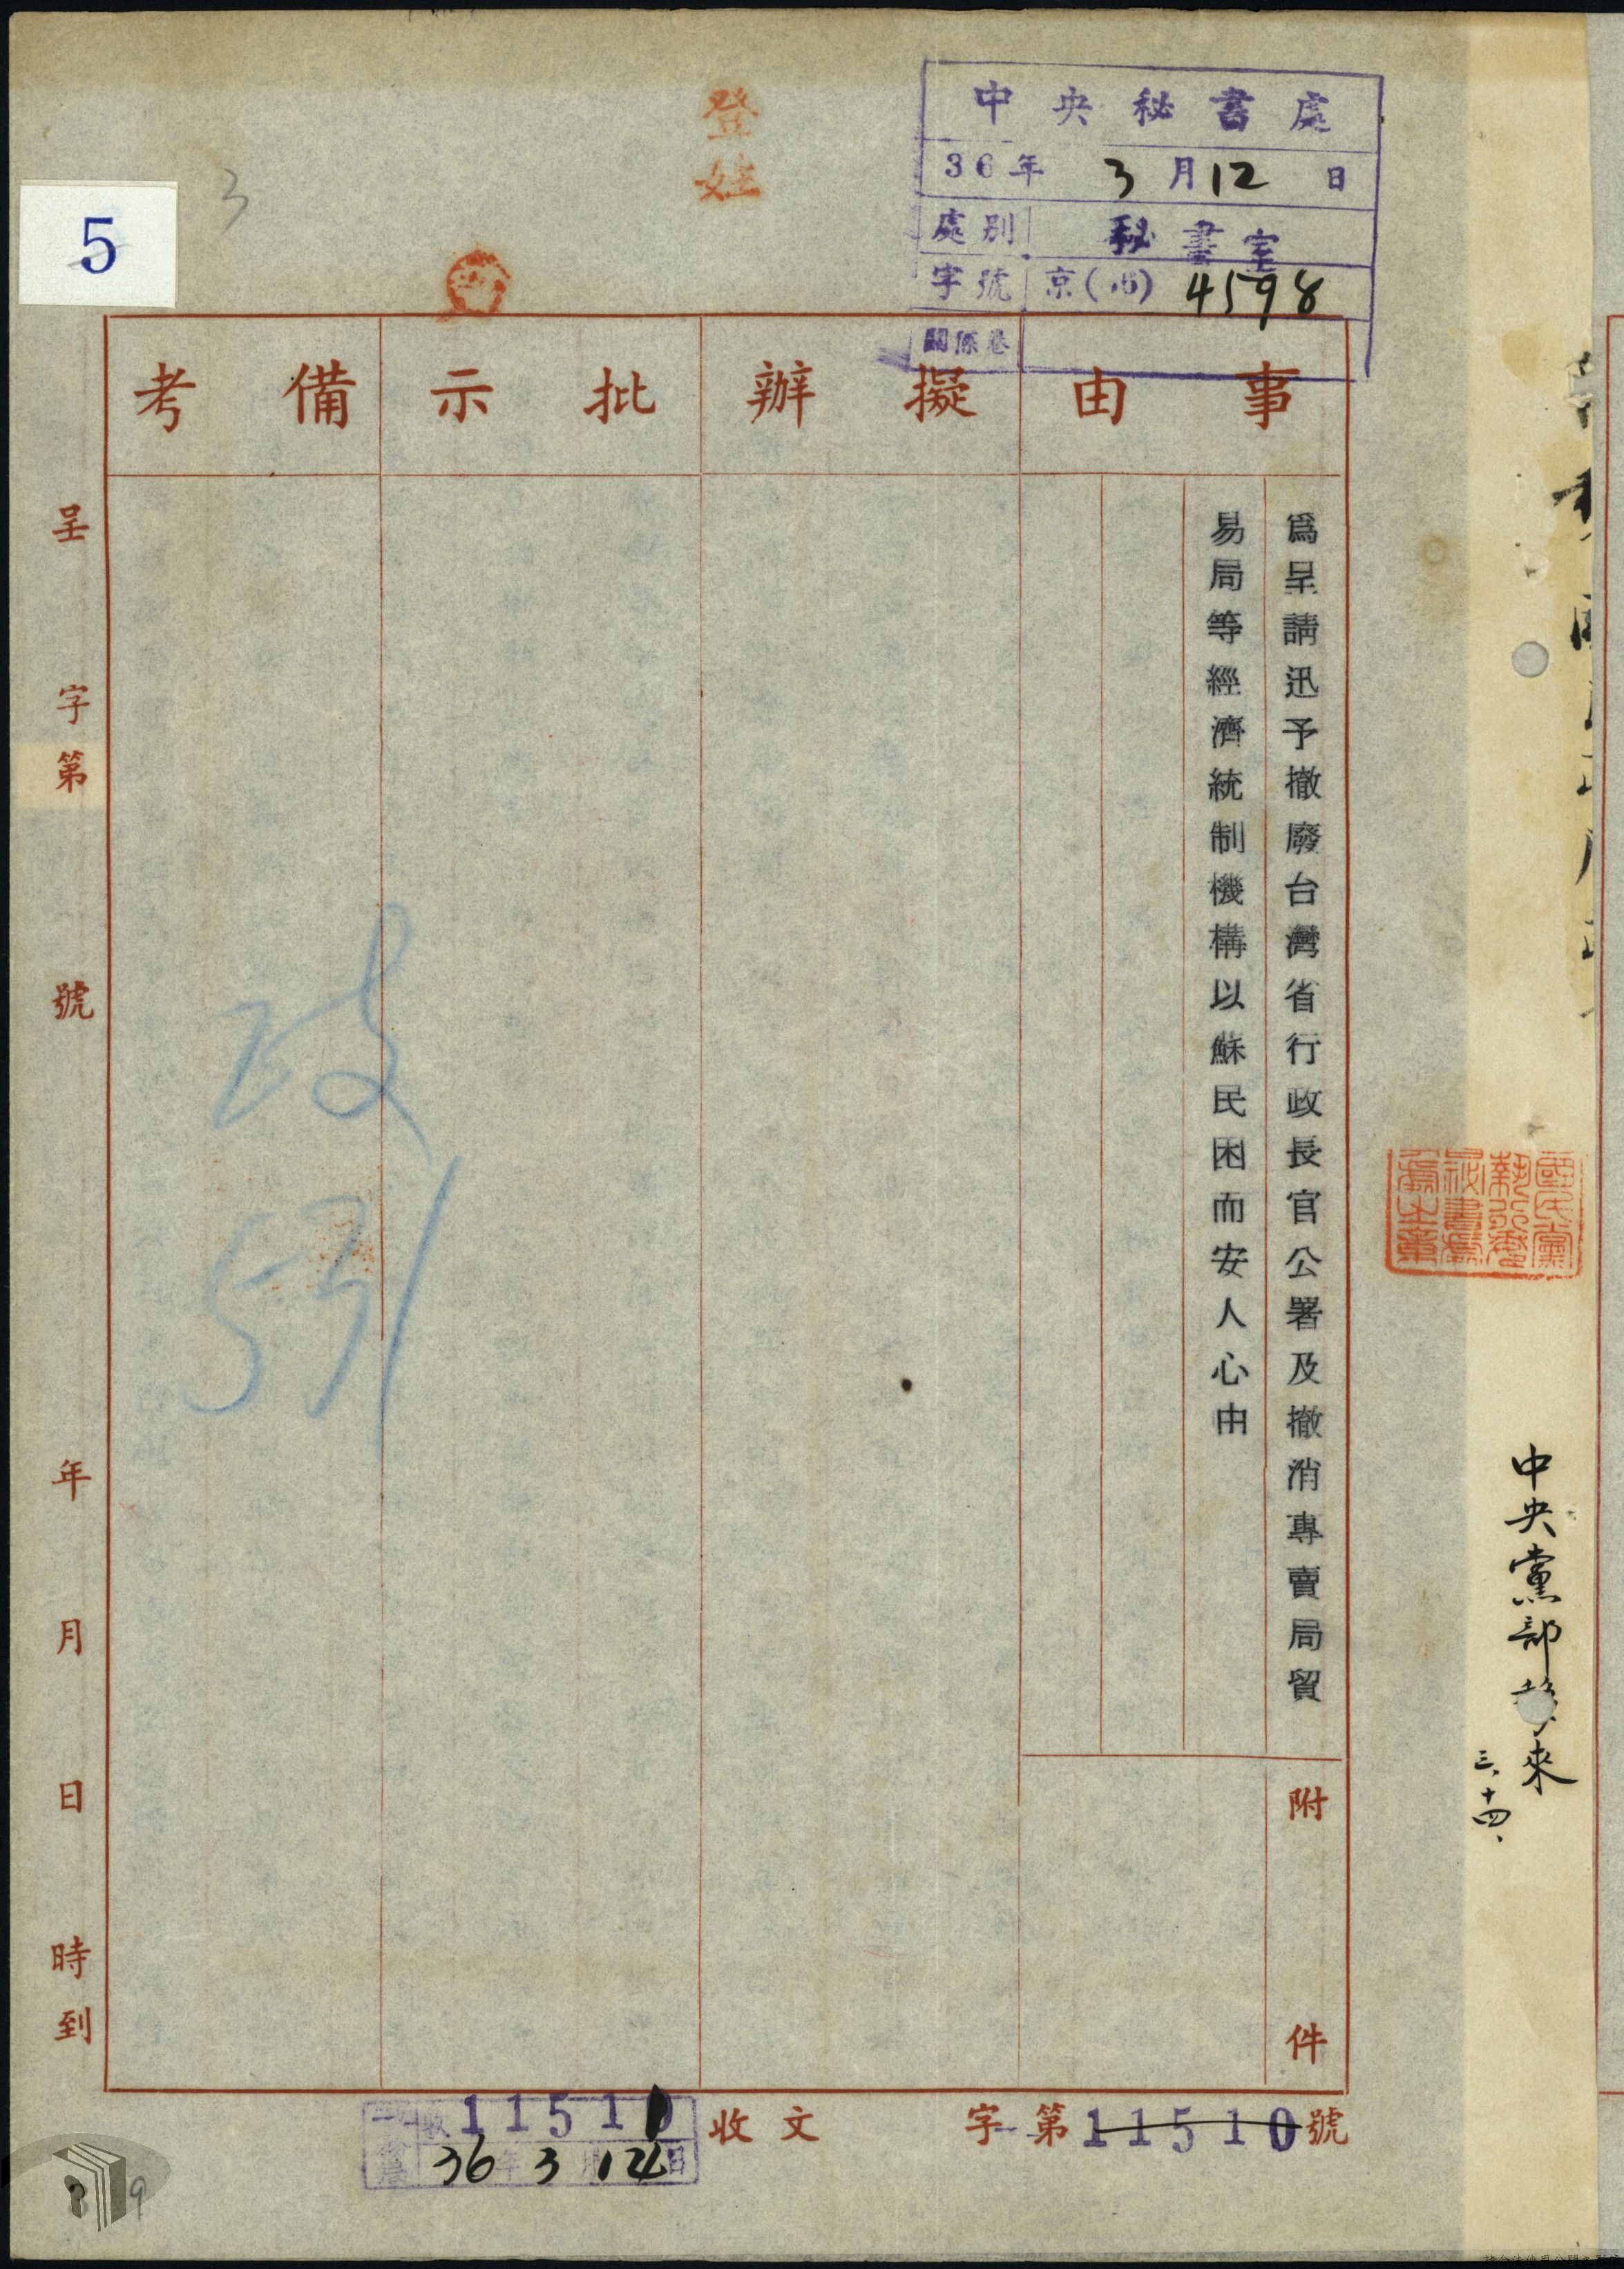 5
3
登
姓
中央秘書處
36年 3月12日
處別 秘書室
字號 京(36) 4598
關係卷
事由
擬辦
批示
備考
為呈請迅予撤廢台灣省行政長官公署及撤消專賣局貿
易局等經濟統制機構以蘇民困而安人心由
附件
政
531
呈 字第 號 年 月 日 時到
中央黨部 來
三、十四、
收文 字第11510號
收 11511
36年3月14日
9